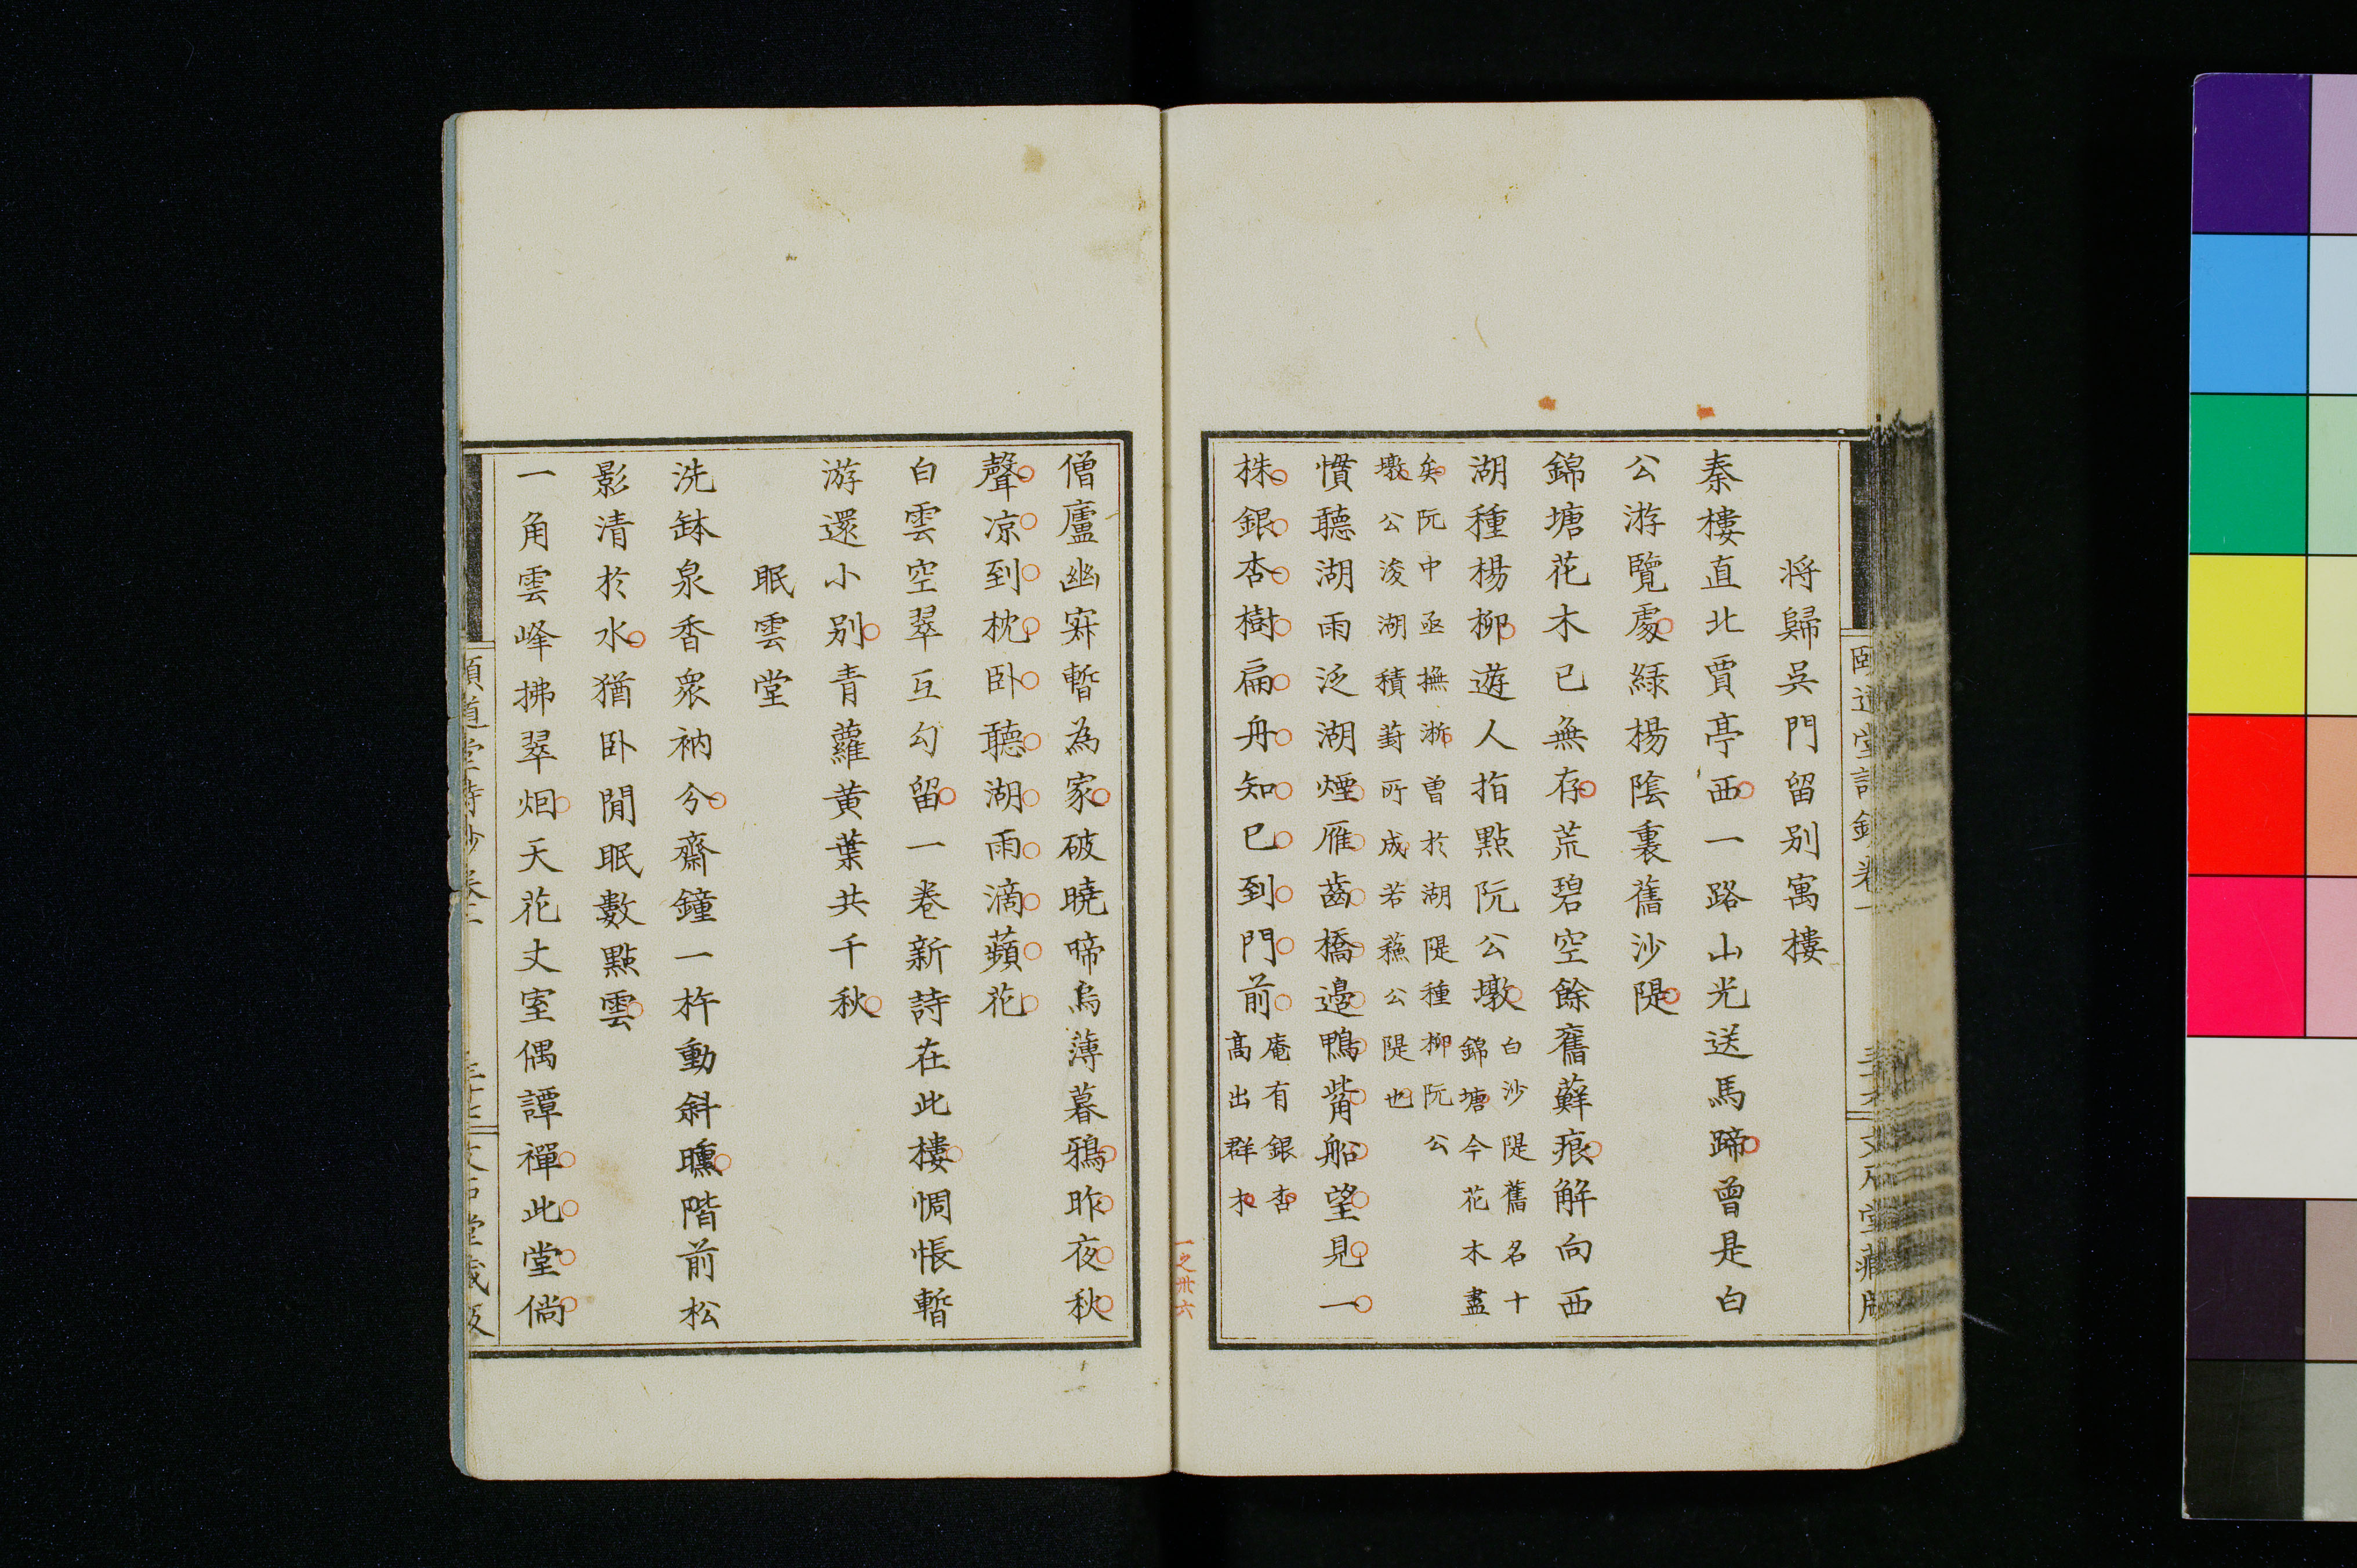 將歸吳門留别寓樓
秦樓直北賈亭西一路山光送馬蹄曾是白
公游覽處緑楊陰裏舊沙隄
錦塘花木已無存荒碧空餘舊蘚痕解向西
湖種楊柳遊人指點阮公墩
白沙隄舊名十
錦塘今花木盡
矣阮中丞撫浙曽於湖隄種柳阮公
墩公浚湖積葑所成若蘓公隄也
慣聽湖雨泛湖煙雁齒橋邉鴨觜船望見一
株銀杏樹扁舟知已到門前
庵有銀杏
髙出群木
一之卅六
僧廬幽寂暫為家破曉啼烏薄暮鴉昨夜秋
聲凉到枕卧聽湖雨滴蘋花
白雲空翠互勾留一卷新詩在此樓惆悵暫
游還小别青蘿黄葉共千秋
眠雲堂
洗鉢泉香衆衲分齋鐘一杵動斜曛階前松
影清於水猶卧閒眠數點雲
一角雲峰拂翠烟天花丈室偶譚禪此堂倘
頤道堂詩鈔卷